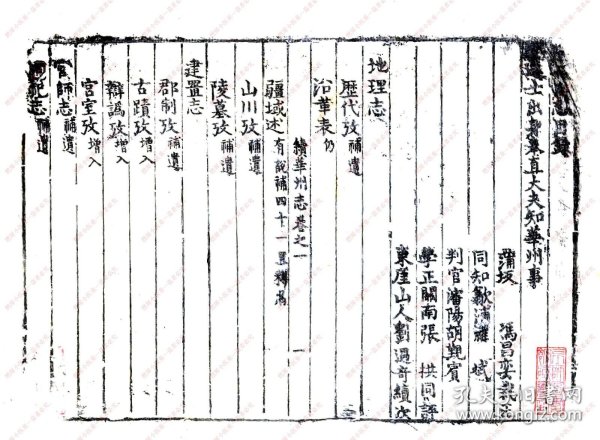 華州志目錄
進士出身奉直大夫知華州事
蒲坂 馮昌奕
同知歙浦羅 斌
判官瀋陽胡覲賓
學正關南張 拱同評
東崖山人劉遇奇續次
地理志
歷代攷補遺
沿革表仍
續華州志卷之一 一
疆域述有說補四十一里釋名
山川攷補遺
陵墓攷補遺
建置志
郡制攷補遺
古蹟攷增入
辯譌攷增入
宮室攷增入
官師志補遺
祀志補遺
孔夫子旧书网